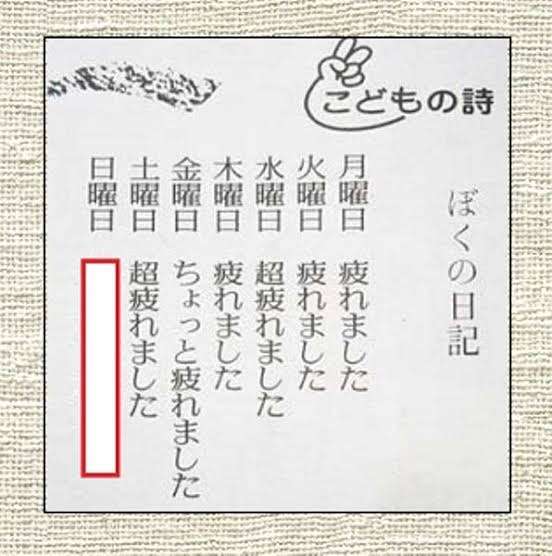 こどもの詩
ぼくの日記
月曜日 疲れました
火曜日 疲れました
水曜日 超疲れました
木曜日 疲れました
金曜日 ちょっと疲れました
土曜日 超疲れました
日曜日